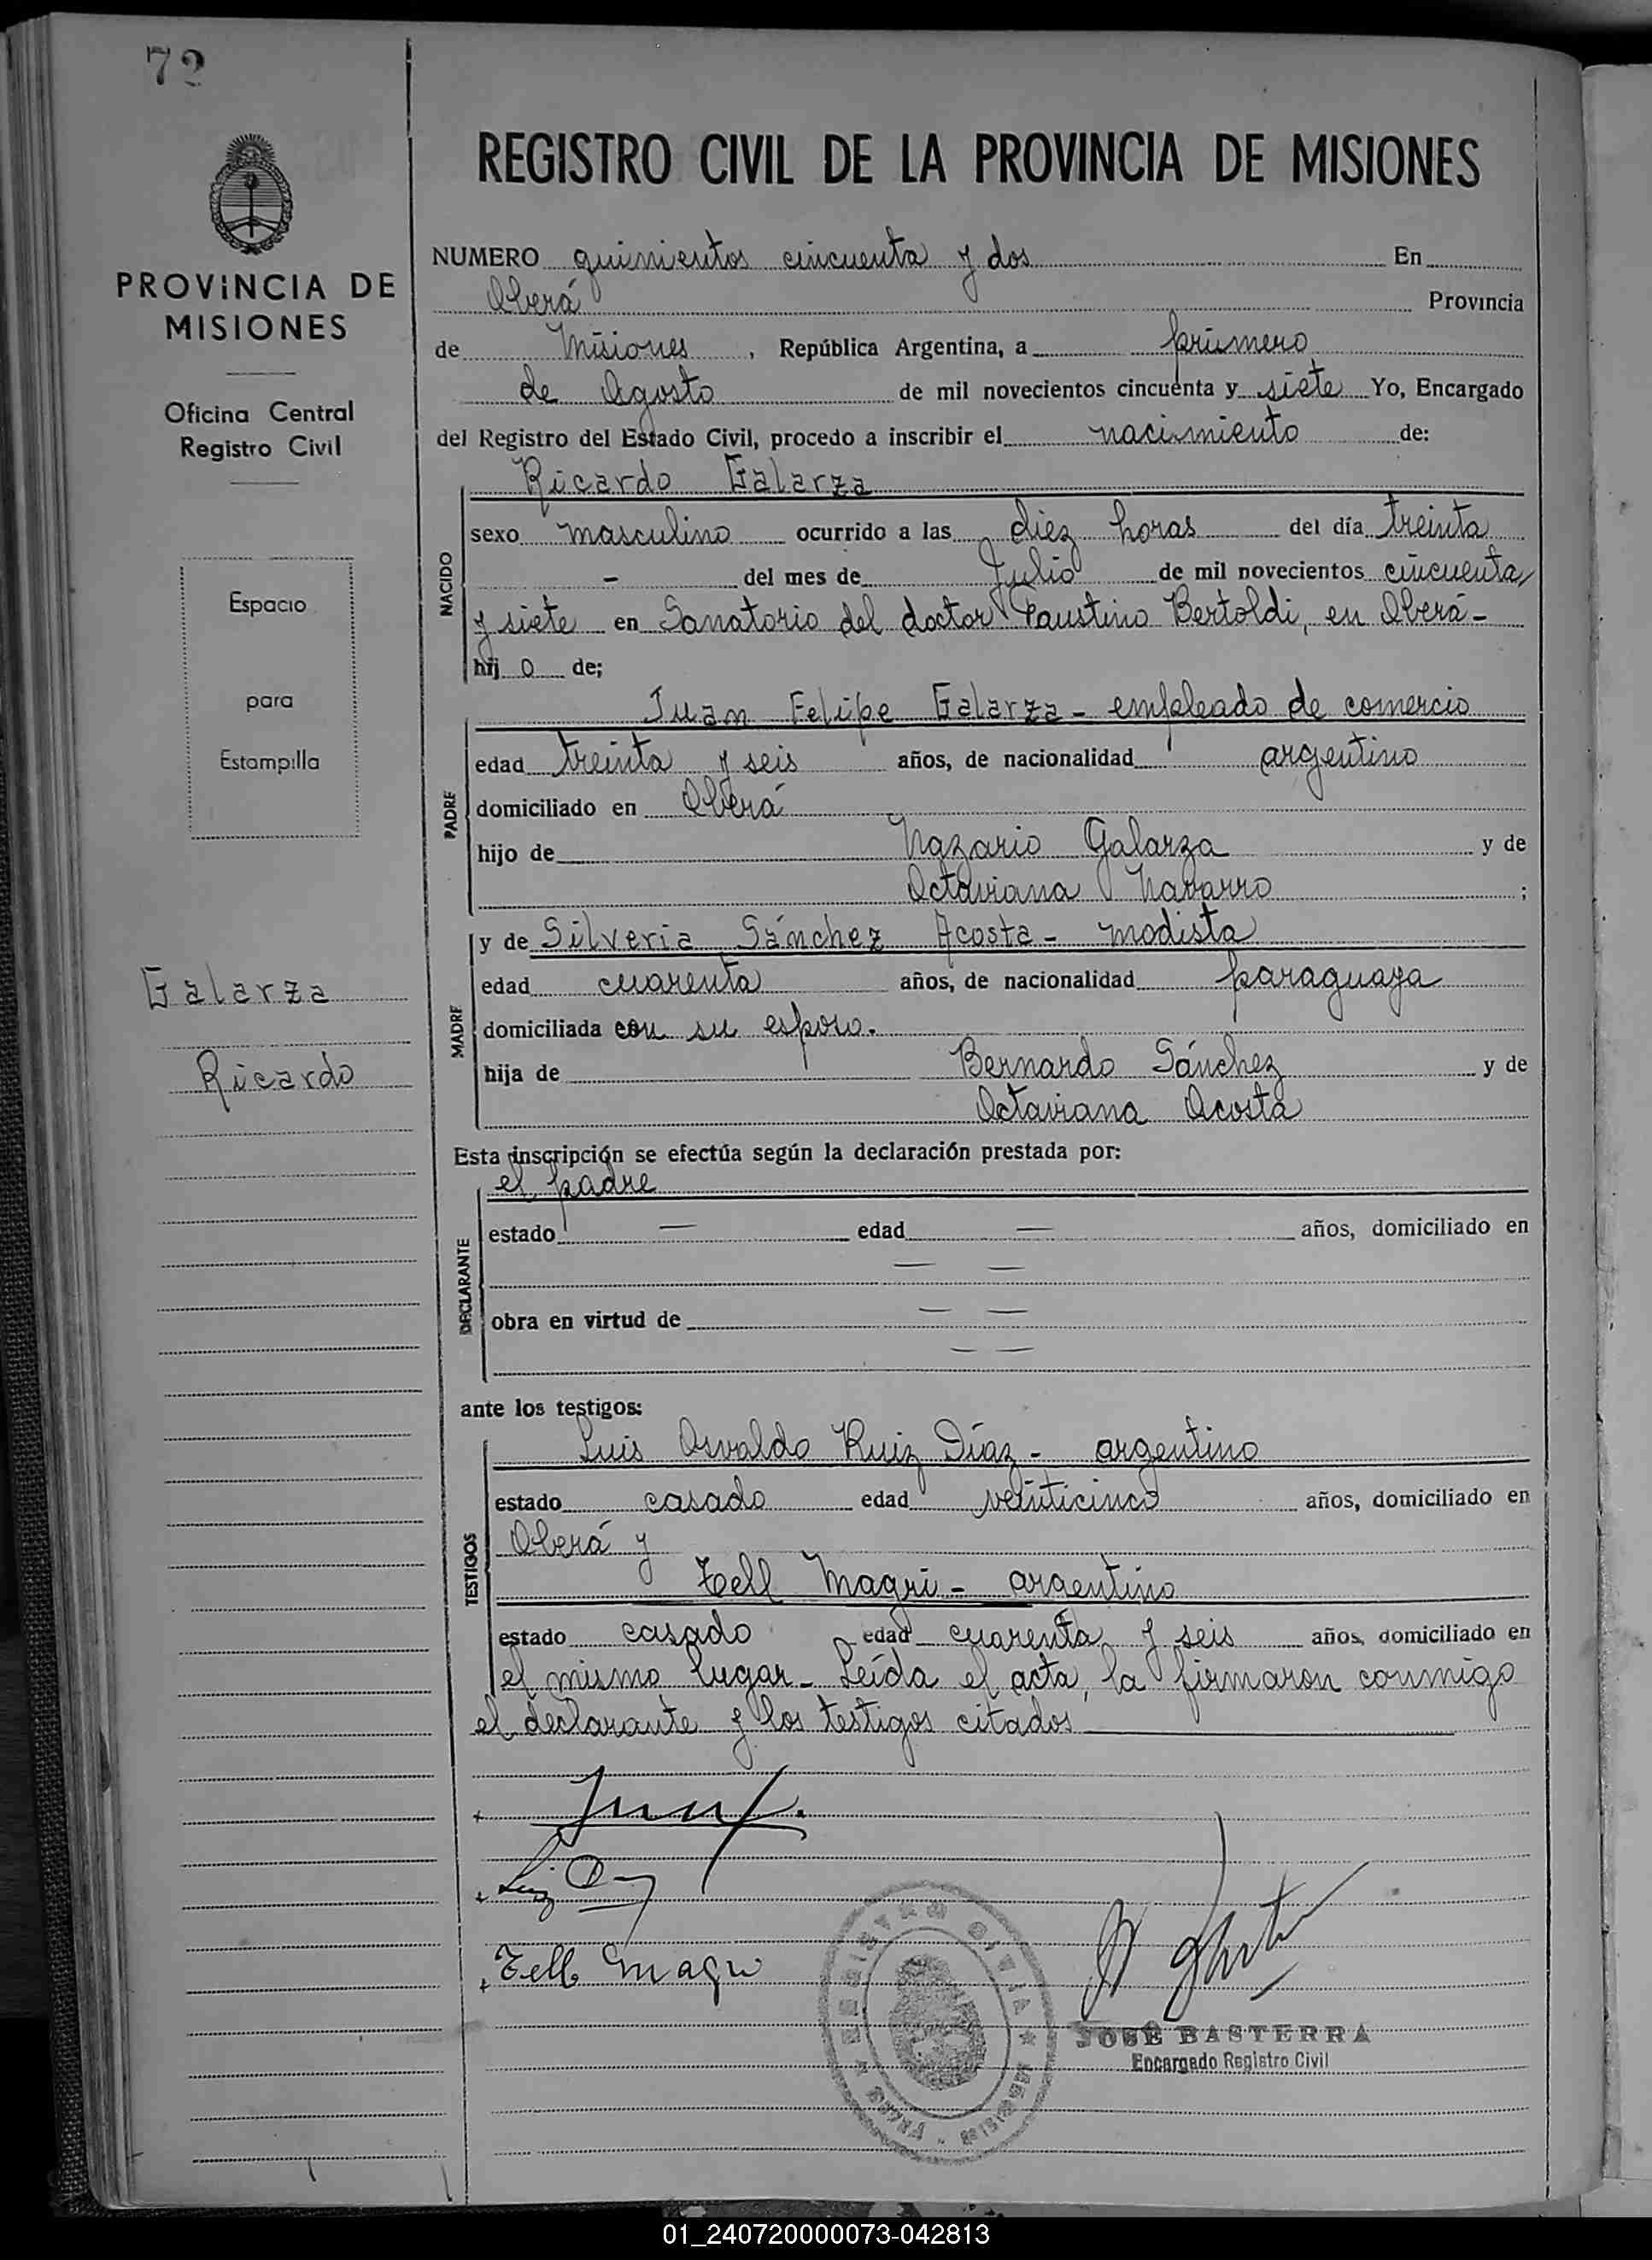 72
PROVINCIA DE
MISIONES
Oficina Central
Registro Civil
Espacio
para
Estampilla
Galarza
Ricardo
REGISTRO CIVIL DE LA PROVINCIA DE MISIONES
NUMERO quinientos cincuenta y dos En
Oberá Provincia
de Misiones, República Argentina, a primero
de Agosto de mil novecientos cincuenta y siete Yo, Encargado
del Registro del Estado Civil, procedo a inscribir el nacimiento de:
Ricardo Galarza
NACIDO
sexo masculino ocurrido a las diez horas del día treinta
- del mes de Julio de mil novecientos cincuenta
y siete en Sanatorio del doctor Faustino Bertoldi, en Oberá -
hij o de;
Juan Felipe Galarza - empleado de comercio
PADRE
edad treinta y seis años, de nacionalidad argentino
domiciliado en Oberá
hijo de Nazario Galarza y de
Octaviana Navarro ;
y de Silveria Sánchez Acosta - modista
MADRE
edad cuarenta años, de nacionalidad paraguaya
domiciliada con su esposo.
hija de Bernardo Sánchez y de
Octaviana Acosta
Esta inscripción se efectúa según la declaración prestada por:
el padre
DECLARANTE
estado — edad — años, domiciliado en
— —
obra en virtud de — —
— —
ante los testigos:
Luis Osvaldo Ruiz Díaz - argentino
TESTIGOS
estado casado edad veinticinco años, domiciliado en
Oberá y
Tell Magri - argentino
estado casado edad cuarenta y seis años, domiciliado en
el mismo lugar - Leída el acta, la firmaron conmigo
el declarante y los testigos citados
Tell Magri
REGISTRO CIVIL
JOSÉ BASTERRA
Encargado Registro Civil
01_240720000073-042813